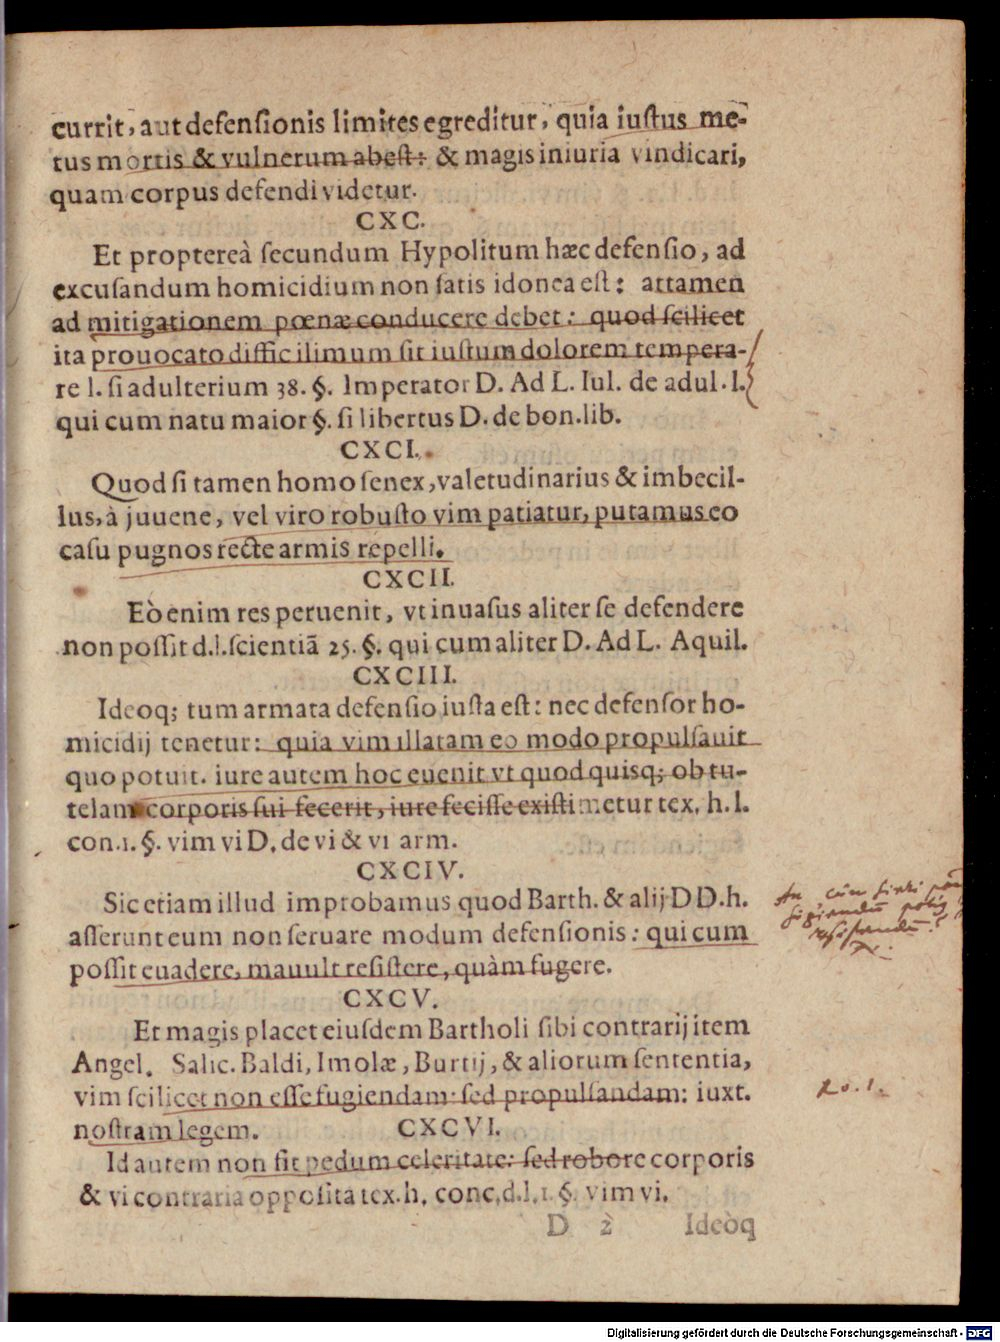 currit, aut defensionis limites egreditur, quia iustus me-
tus mortis & vulnerum abest: & magis iniuria vindicari,
quam corpus defendi videtur.
CXC.
Et proptereà secundum Hypolitum hæc defensio, ad
excusandum homicidium non satis idonea est: attamen
ad mitigationem pœnæ conducere debet: quod scilicet
ita prouocato difficilimum sit iustum dolorem tempera-
re l. si adulterium 38. §. Imperator D. Ad L. Iul. de adul. l.
qui cum natu maior §. si libertus D. de bon. lib.
CXCI.
Quod si tamen homo senex, valetudinarius & imbecil-
lus, à juuene, vel viro robusto vim patiatur, putamus eo
casu pugnos recte armis repelli.
CXCII.
Eò enim res peruenit, vt inuasus aliter se defendere
non possit d. l. scientiã 25. §. qui cum aliter D. Ad L. Aquil.
CXCIII.
Ideoq; tum armata defensio iusta est: nec defensor ho-
micidij tenetur: quia vim illatam eo modo propulsauit
quo potuit. iure autem hoc euenit vt quod quisq; ob tu-
telam corporis sui fecerit, iure fecisse existimetur tex. h. l.
con. 1. §. vim vi D. de vi & vi arm.
CXCIV.
Sic etiam illud improbamus quod Barth. & alij DD. h.
asserunt eum non seruare modum defensionis: qui cum
possit euadere, mauult resistere, quàm fugere.
CXCV.
Et magis placet eiusdem Bartholi sibi contrarij item
Angel. Salic. Baldi, Imolæ, Burtij, & aliorum sententia,
vim scilicet non esse fugiendam: sed propulsandam: iuxt.
nostram legem. CXCVI.
Id autem non sit pedum celeritate: sed robore corporis
& vi contraria opposita tex. h. conc. d. l. 1. §. vim vi.
D 2 Ideòq
Digitalisierung gefördert durch die Deutsche Forschungsgemeinschaft - DFG